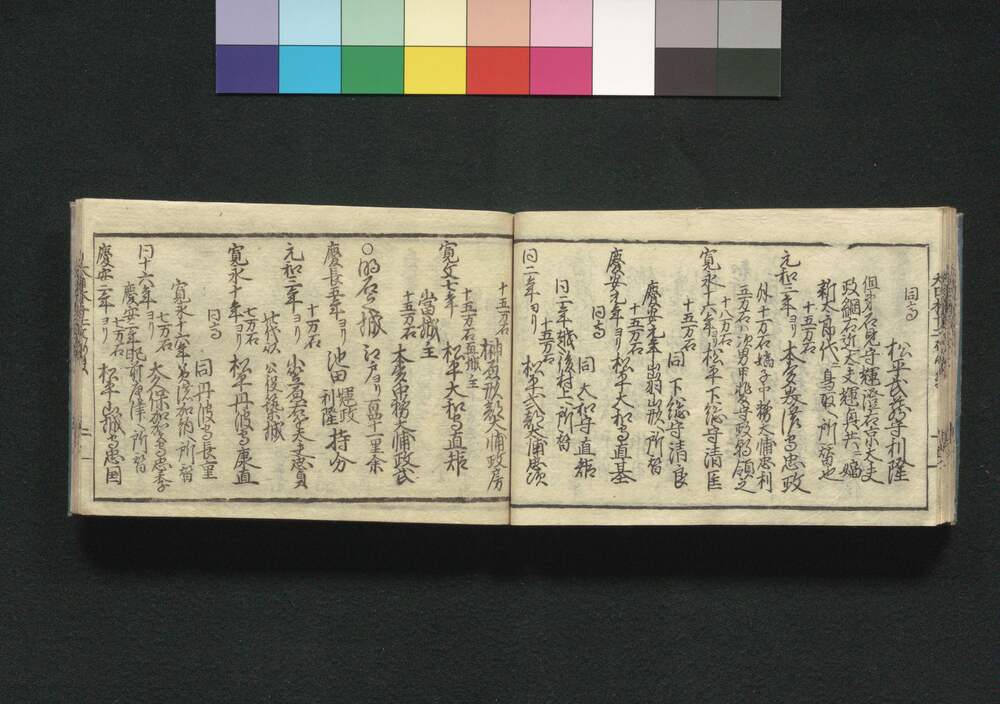 同高
松平武蔵守利隆
但弟石見守輝澄右京大夫
政綱右近大夫輝興共ニ幅
新太郎代ニ鳥取ヘ所替也
十五万石
元和三年ヨリ 本多美濃守忠政
外十万石嫡子中務大輔忠刻
五万石ハ次男甲斐守政朝領之
十八万石
寛永十六年ヨリ 松平下総守清匡
十五万石
同 下総守清良
慶安元年出羽山形ヘ所替
十五万石
慶安元年ヨリ 松平大和守直基
同高
同 大和守直矩
同二年越後村上ヘ所替
十五万石
同二年ヨリ 松平式部大輔忠次
十五万石
榊原刑部大輔政房
十五万石 城主
寛文七年 松平大和守直矩
當城主
十五万石
本多中務大輔政武
○明石ノ城 江戸ヨリ百四十一里余
慶長五年ヨリ 池田輝政利隆持分
十万石
元和三年ヨリ 小笠原右近大夫忠真
此代以公役築城
七万石
寛永十年ヨリ 松平丹波守康直
同高
同 丹波守長重
寛永十六年美濃加納ヘ所替
七万石
同十六年ヨリ 大久保加賀守忠季
慶安二年肥前唐津ヘ所替
七万石
慶安二年ヨリ 松平山城守忠国